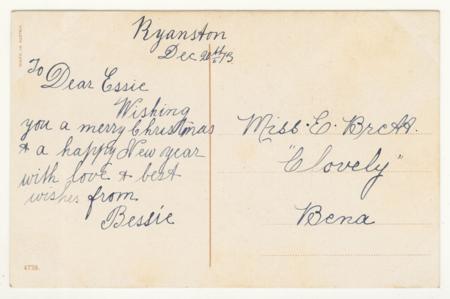 Ryanston
Dec 20th/13
To Dear Essie
Wishing
you a merry Christmas
& a happy New year
with love & best
wishes from
Bessie
Miss E. Brett.
"Clovely"
Bena
4738.